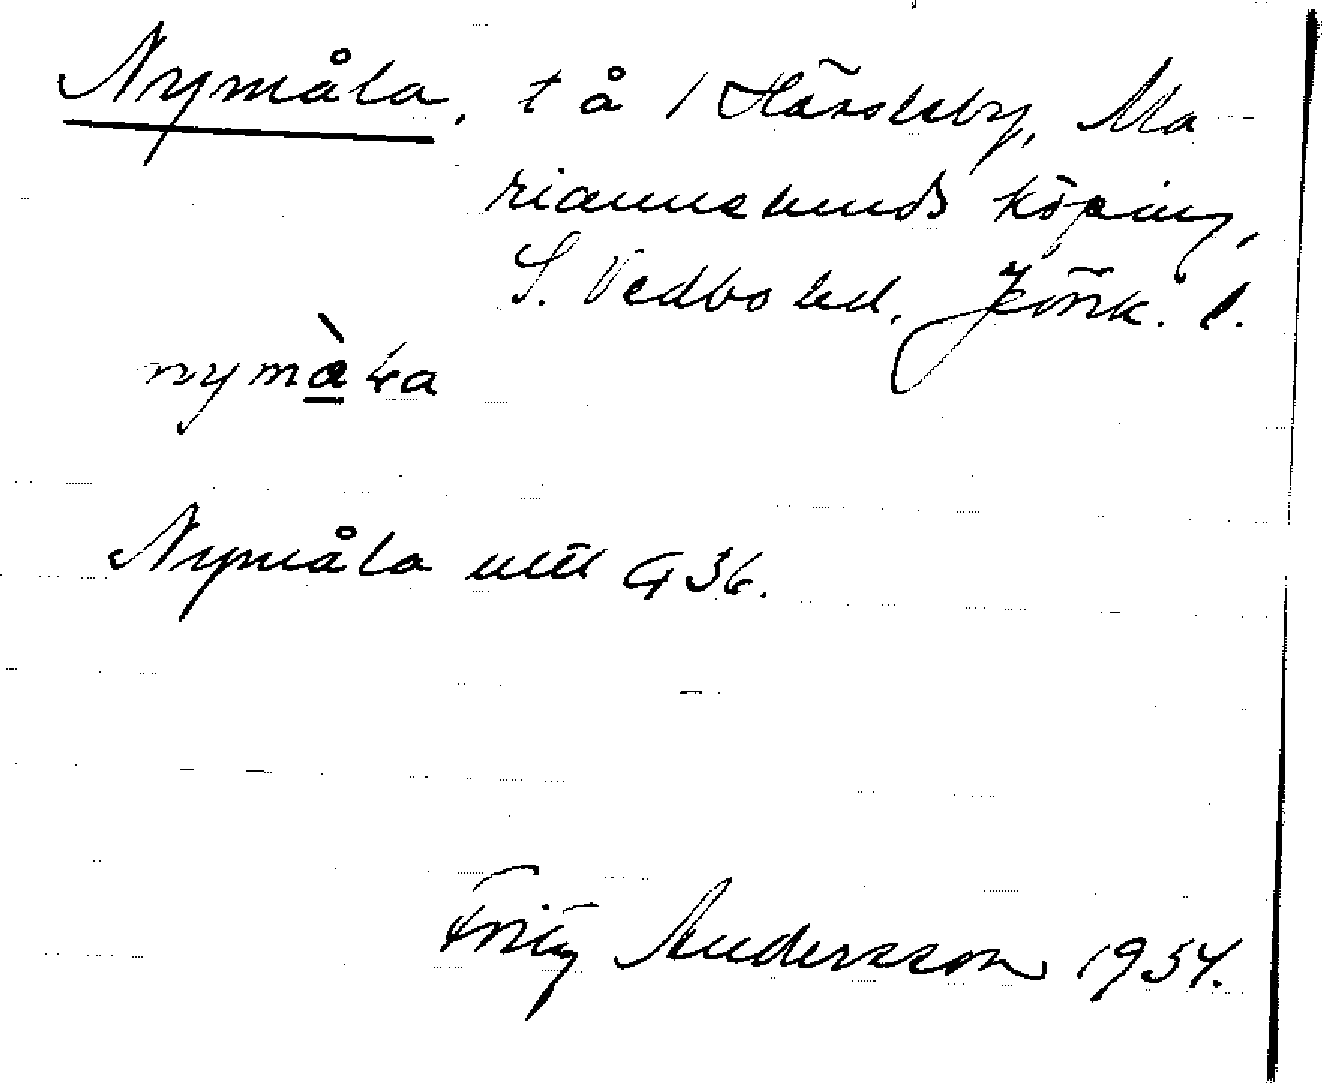 Nymåla, t å / Hässleby, Ma-
riannelunds köping,
S. Vedbo hd, Jönk. l.
nymàla
Nymåla utt G 36.
Fritz Andersson 1954.